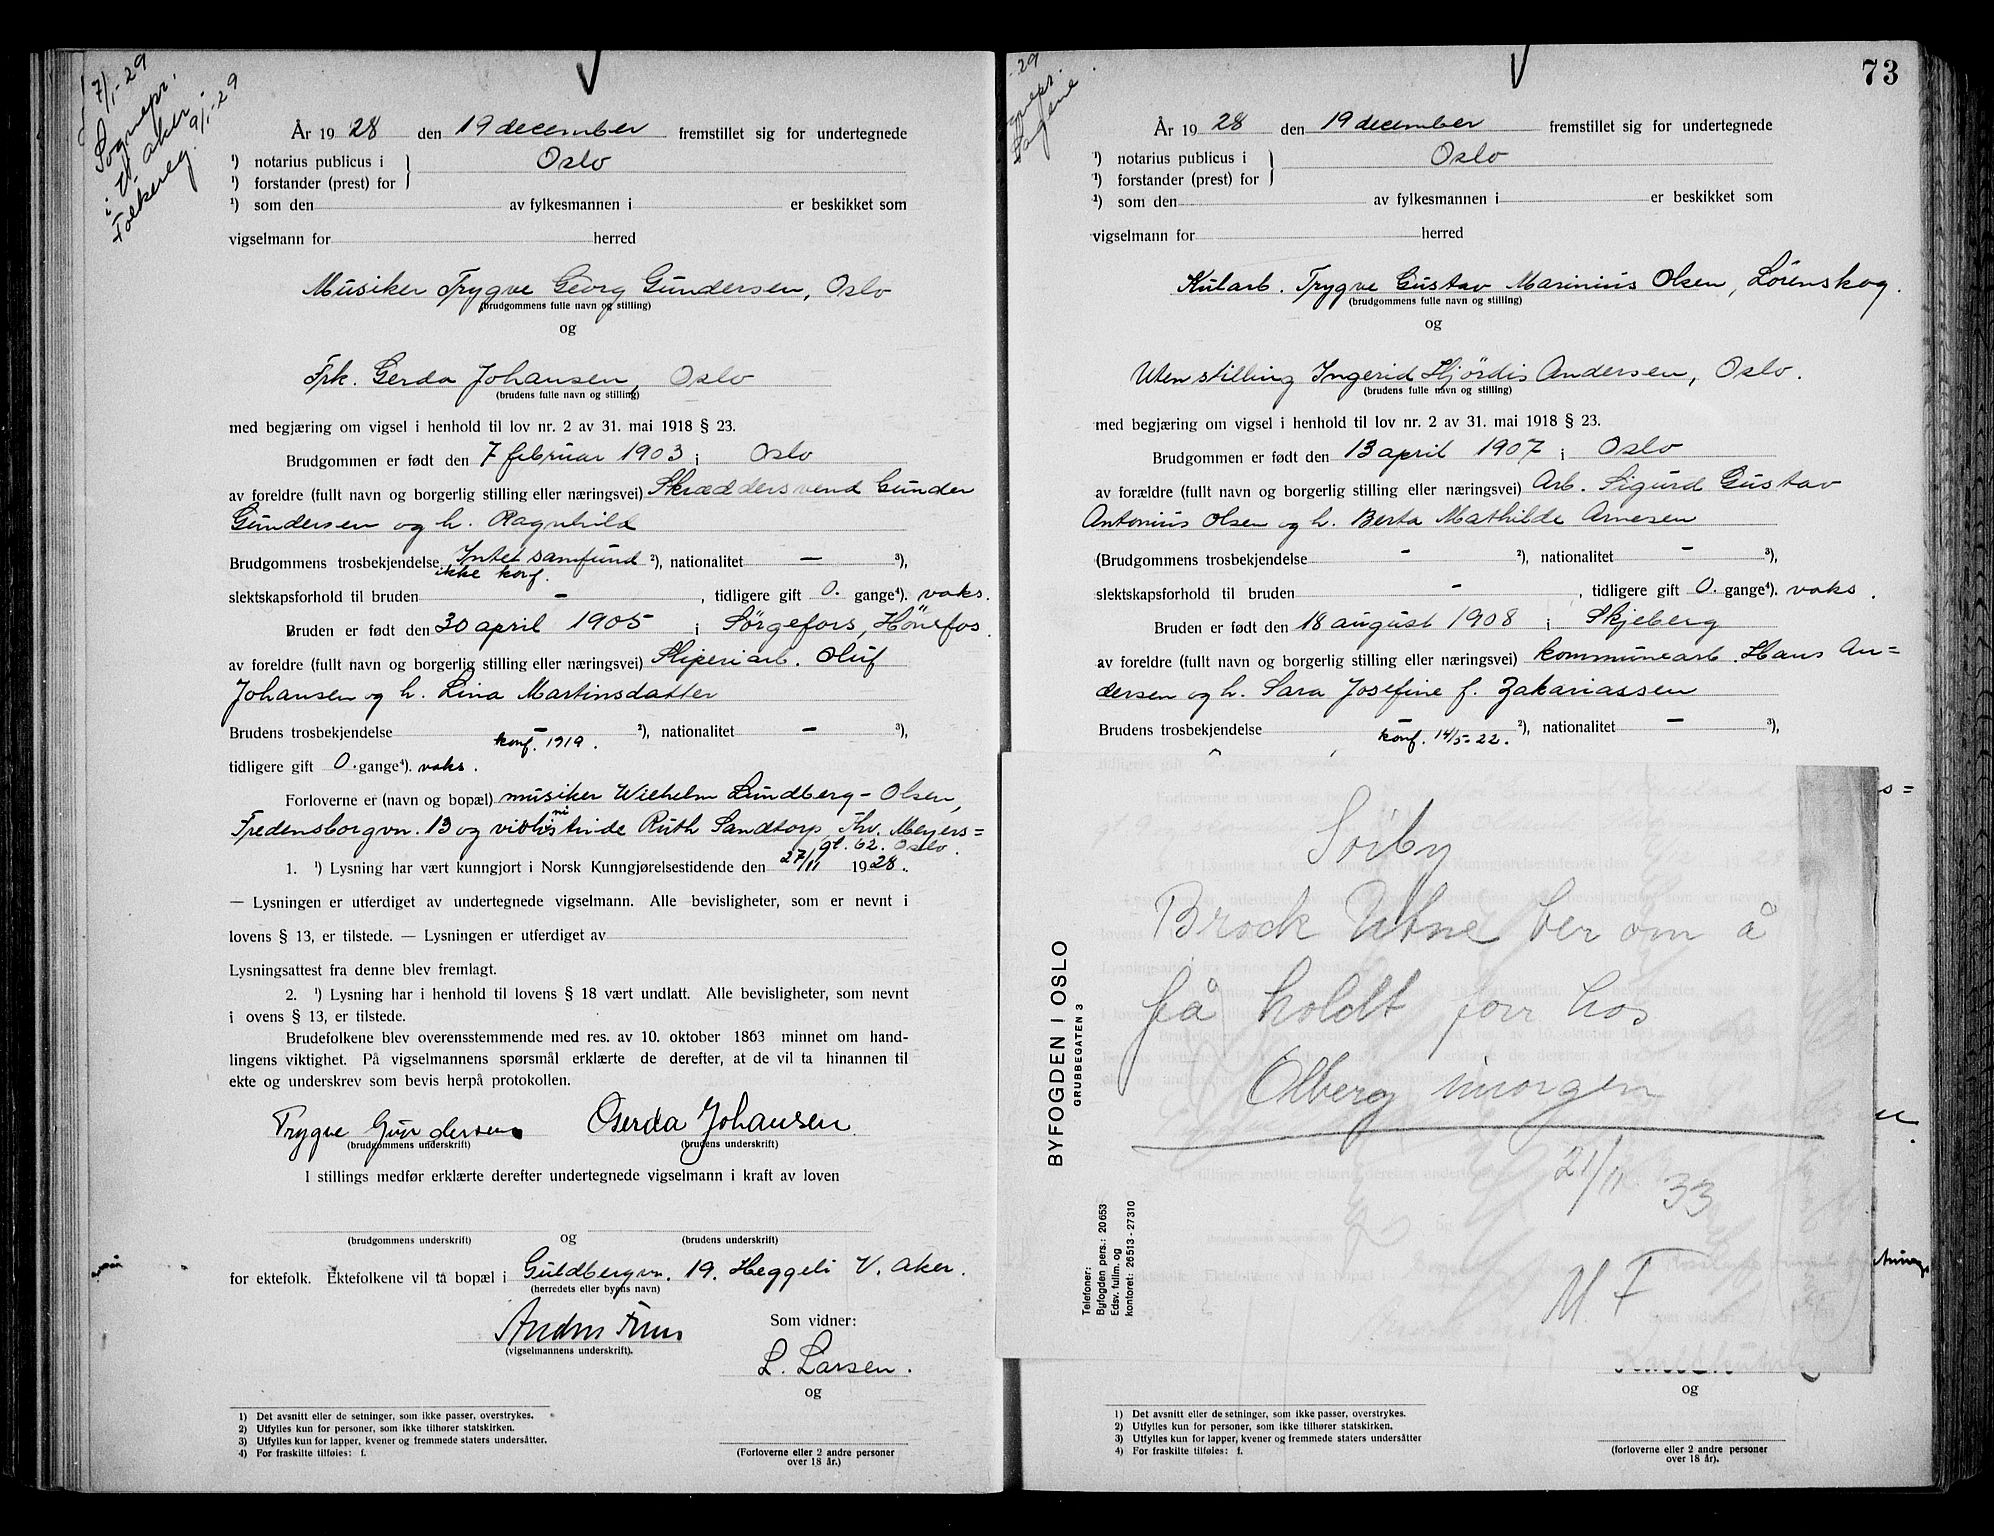 7/1-29
Sognepr.
i V. aker.
Folkereg. 9/1-29
År 1928 den 19 december fremstillet sig for undertegnede
¹) notarius publicus i } Oslo
¹) forstander (prest) for
¹) som den av fylkesmannen i er beskikket som
vigselmann for herred
Musiker Trygve Georg Gundersen, Oslo
(brudgommens fulle navn og stilling)
og
Frk. Gerda Johansen, Oslo
(brudens fulle navn og stilling)
med begjæring om vigsel i henhold til lov nr. 2 av 31. mai 1918 § 23.
Brudgommen er født den 7 februar 1903 i Oslo
av foreldre (fullt navn og borgerlig stilling eller næringsvei) Skræddersvend Gunder
Gundersen og h. Ragnhild
Brudgommens trosbekjendelse Intet samfund ²), nationalitet – ³),
ikke konf.
slektskapsforhold til bruden – , tidligere gift 0. gange⁴). vaks.
Bruden er født den 30 april 1905 i Sørgefors, Hønefos.
av foreldre (fullt navn og borgerlig stilling eller næringsvei) Sliperiarb. Oluf
Johansen og h. Lina Martinsdatter
Brudens trosbekjendelse – ²), nationalitet – ³),
konf. 1919.
tidligere gift 0. gange⁴). vaks.
Forloverne er (navn og bopæl) musiker Wilhelm Lundberg-Olsen,
Fredensborgvn. 13 og violinistinde Ruth Sandtorp, Thv. Meyers=
gt. 62. Oslo.
1. ¹) Lysning har vært kunngjort i Norsk Kunngjørelsestidende den 27/11 1928.
— Lysningen er utferdiget av undertegnede vigselmann. Alle bevisligheter, som er nevnt i
lovens § 13, er tilstede. — Lysningen er utferdiget av
Lysningsattest fra denne blev fremlagt.
2. ¹) Lysning har i henhold til lovens § 18 vært undlatt. Alle bevisligheter, som nevnt
i ovens § 13, er tilstede.
Brudefolkene blev overensstemmende med res. av 10. oktober 1863 minnet om hand-
lingens viktighet. På vigselmannens spørsmål erklærte de derefter, at de vil ta hinannen til
ekte og underskrev som bevis herpå protokollen.
Trygve Gundersen Gerda Johansen
(brudgommens underskrift) (brudens underskrift)
I stillings medfør erklærte derefter undertegnede vigselmann i kraft av loven
og
(brudgommens underskrift) (brudens underskrift)
for ektefolk. Ektefolkene vil ta bopæl i Guldbergvn. 19. Heggeli V. Aker.
(herredets eller byens navn)
Som vidner:
(vigselmannens underskrift).
L. Larsen.
og
1) Det avsnitt eller de setninger, som ikke passer, overstrykes.
2) Utfylles kun for personer, som ikke tilhører statskirken.
3) Utfylles kun for lapper, kvener og fremmede staters undersåtter.
4) For fraskilte tilføies: f.
(Forloverne eller 2 andre personer
over 18 år.)
73
-29
Sagene
År 1928 den 19 december fremstillet sig for undertegnede
¹) notarius publicus i } Oslo
¹) forstander (prest) for
¹) som den av fylkesmannen i er beskikket som
vigselmann for herred
Kularb. Trygve Gustav Marinius Olsen, Lørenskog.
(brudgommens fulle navn og stilling)
og
Uten stilling Ingerid Hjördis Andersen, Oslo.
(brudens fulle navn og stilling)
med begjæring om vigsel i henhold til lov nr. 2 av 31. mai 1918 § 23.
Brudgommen er født den 13 april 1907 i Oslo
av forældre (fullt navn og borgerlig stilling eller næringsvei) Arb. Sigurd Gustav
Antonius Olsen og h. Berta Mathilde Arnesen
(Brudgommens trosbekjendelse – ²), nationalitet – ³),
slektskapsforhold til bruden – , tidligere gift 0. gange⁴). vaks.
Bruden er født den 18 august 1908 i Skjeberg
av foreldre (fullt navn og borgerlig stilling eller næringsvei) kommunearb. Hans An=
dersen og h. Sara Josefine f. Zakariassen
Brudens trosbekjendelse – ²), nationalitet – ³),
konf. 14/5-22.
BYFOGDEN I OSLO
GRUBBEGATEN 3
Telefoner:
Byfogden pers.: 20653
Edsv. fullm. og
kontoret: 26513 - 27310
Sørby
Brock Utne ber om å
få holdt forr hos
Olberg imorgen
21/11 33
M. F
og
1) Det avsnitt eller de setninger, som ikke passer, overstrykes.
2) Utfylles kun for personer, som ikke tilhører statskirken.
3) Utfylles kun for lapper, kvener og fremmede staters undersåtter
4) For fraskilte tilføles: f.
(forloverne eller 2 andre personer
over 18 år).